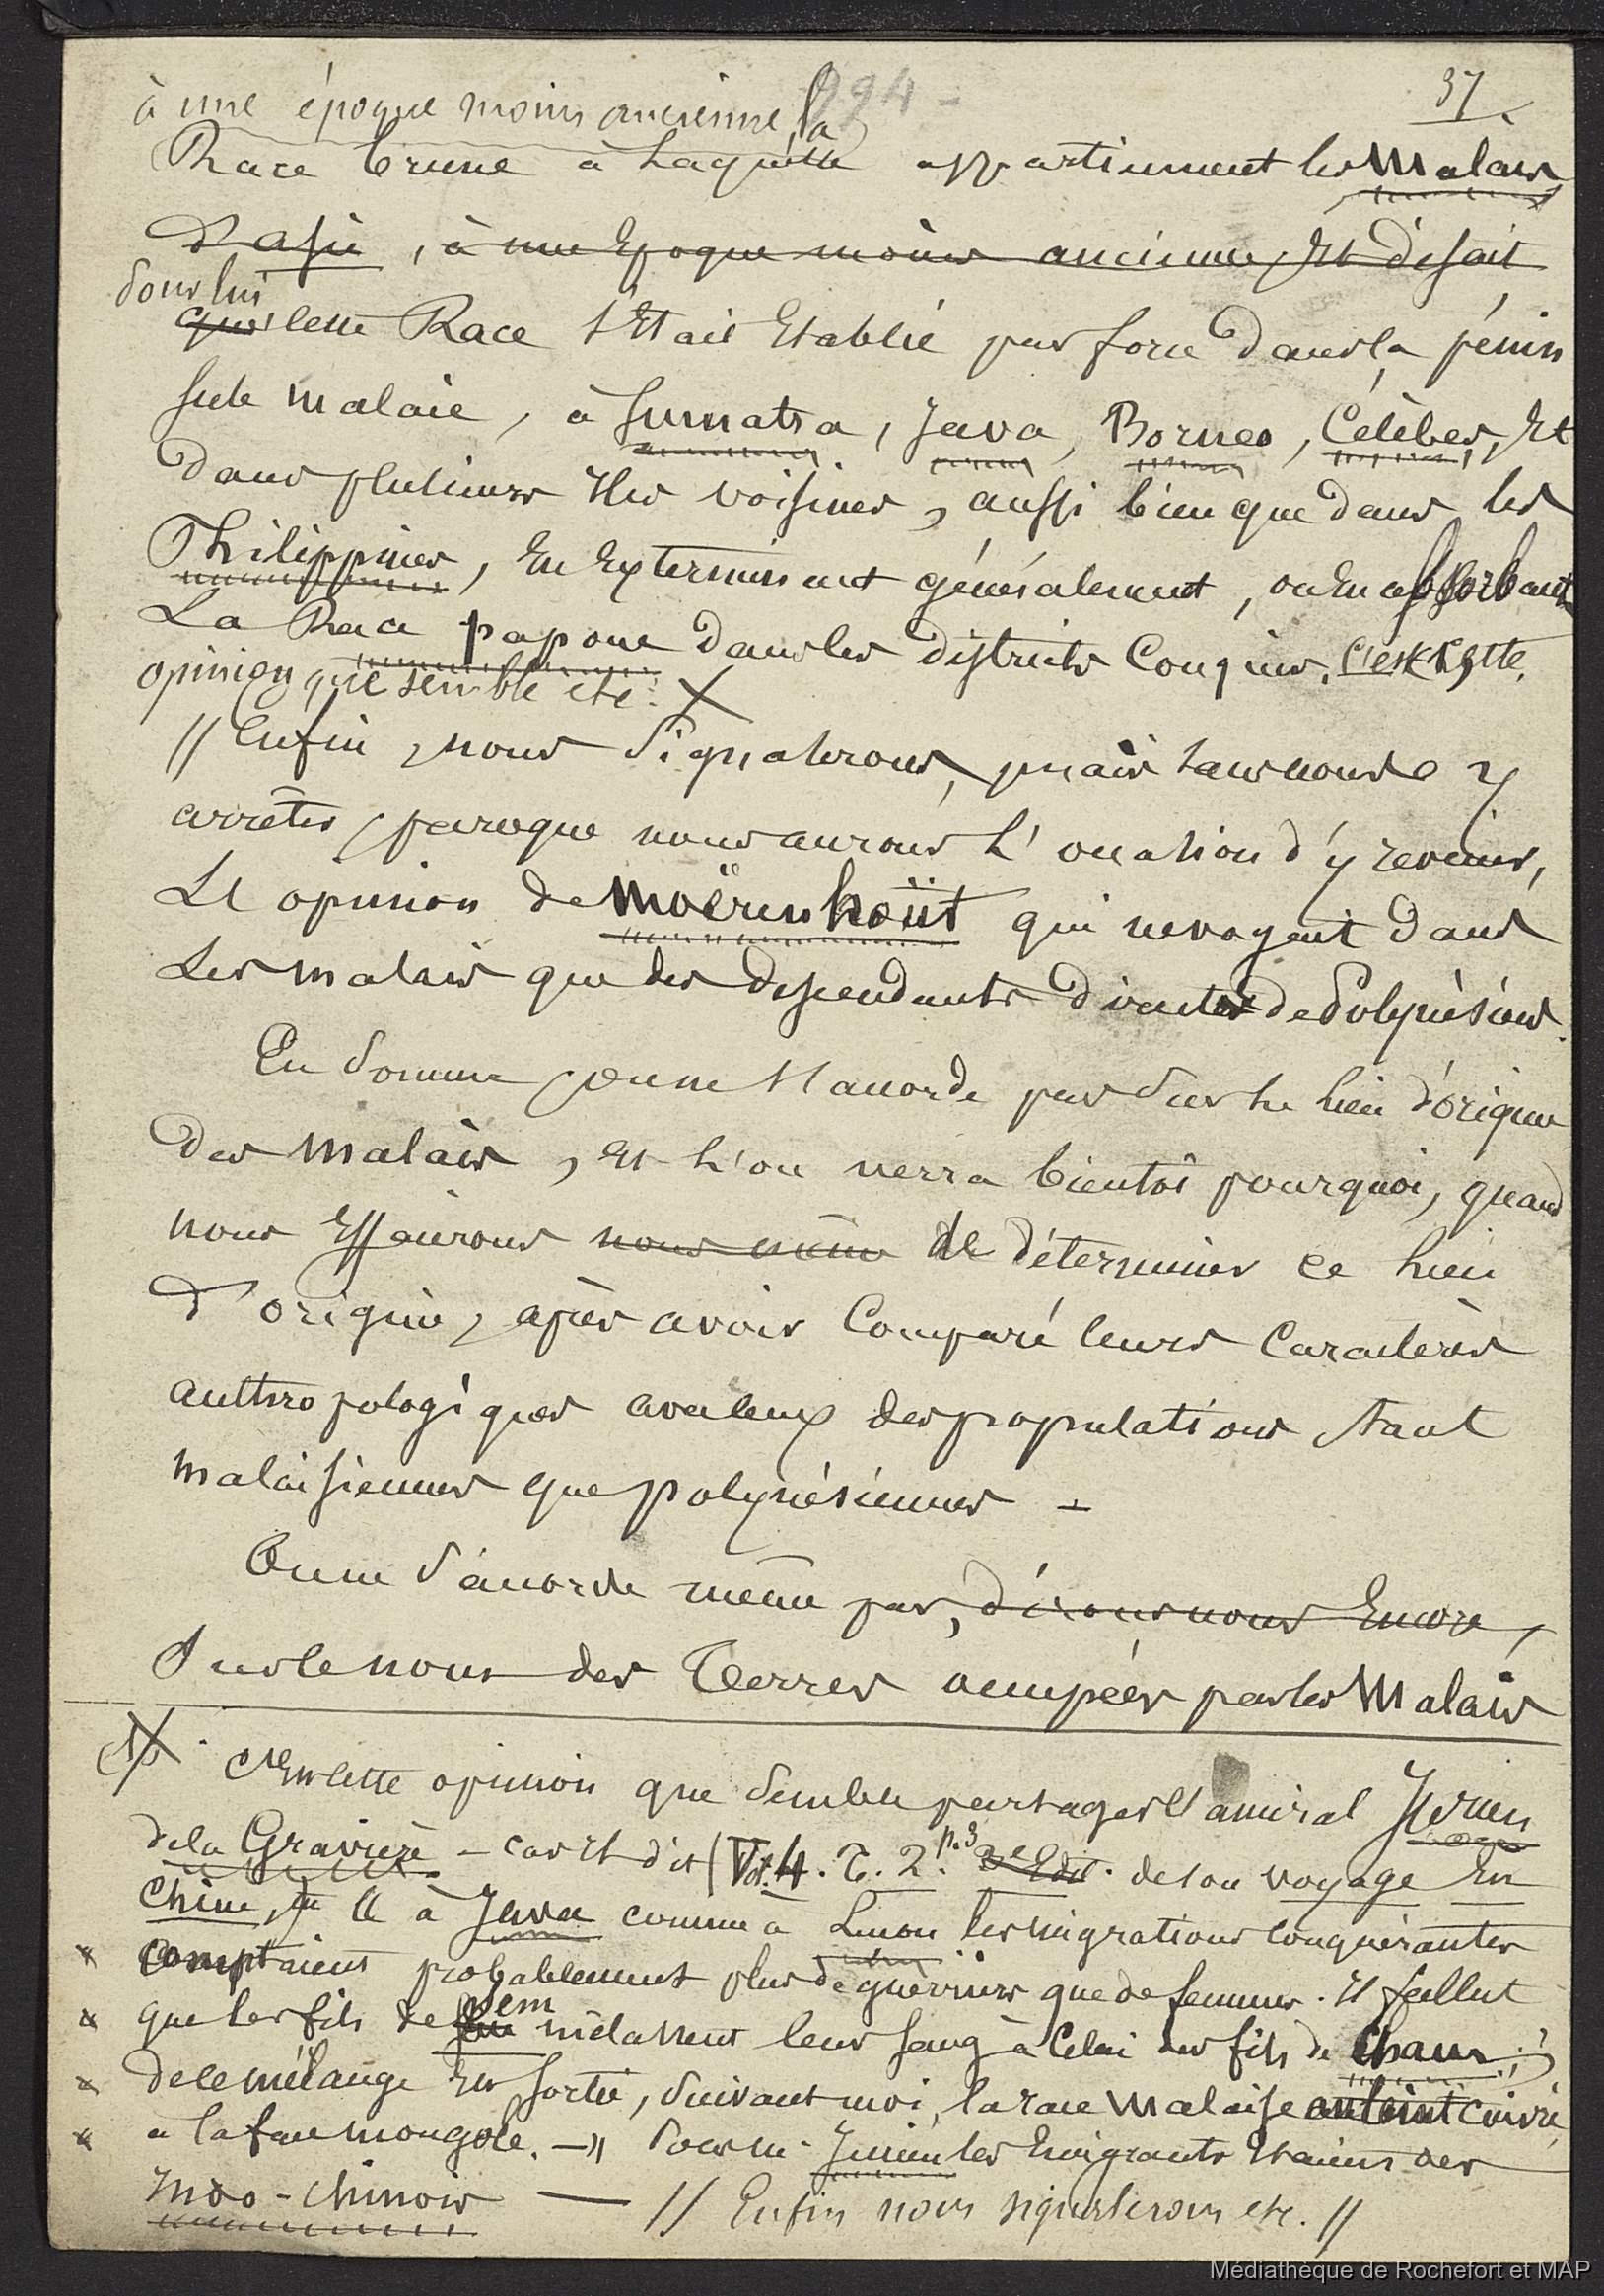 37.
994 -
à une époque moins ancienne, la
Race brune à laquelle appartiennent les Malais
d'asie, à une Epoque moins ancienne, Et disait
pour lui
que cette Race s'Etait Etablie par force dans la pénin
sule malaie, à Sumatra, Java, Borneo, Célèbes, Et
dans plusieurs Iles voisines, aussi bien que dans les
Philippines, En Exterminant généralement, ou En absorbant
La Race papoue dans les districts Conquis. C'est cette
opinion que semble etc. X
// Enfin, nous signalerons, mais sans nous y
arrêter, parceque nous aurons l'occasion d'y revenir,
L'opinion de Moërenhoüt qui ne voyait dans
Les malais que des descendants directs de Polynésiens.
En somme, on ne s'accorde pas sur le lieu d'origine
des Malais, Et l'on verra bientôt pourquoi, quand
nous Essaierons nous même de déterminer ce lieu
d'origine, après avoir Comparé leurs Caractères
anthropologiques avec ceux des populations tant
malaisiennes que polynésiennes -
On ne s'accorde même pas, dirons nous Encore,
Sur le nom des Terres occupées par les Malais
X. C'Est cette opinion que semble partager l'amiral Jurien
de la Gravière - car Il dit (Vol. 4. T. 2. p. 3 2e Edit. de son voyage En
Chine, "à Java comme à Luçon les migrations conquérantes
" comptaient probablement plus de guerriers que de femmes. Il fallut
" que les fils de Sem mêlassent leur sang à Celui des fils de Cham;
" de ce mélange Est sortie, suivant moi, la race Malaise au teint cuivré,
" à la face mongole. -" Pour M. Jurien les Emigrants Etaient des
Indo-Chinois — // Enfin nous signalerons etc. //
Médiathèque de Rochefort et MAP